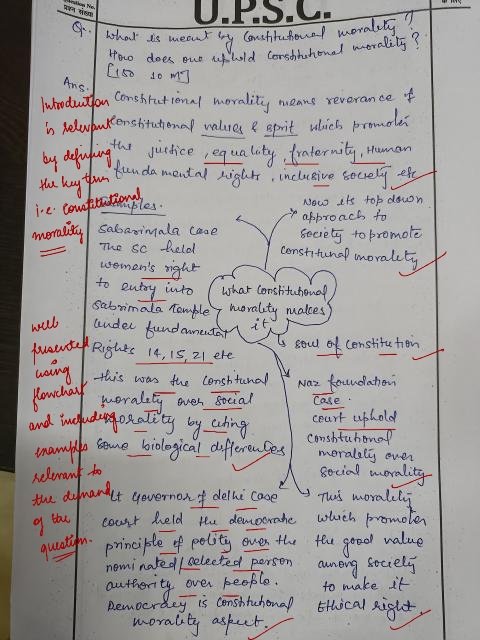 U.P.S.C.
प्रश्न संख्या
के लिए
Q. What is meant by Constitutional morality?
How does one uphold Constitutional morality?
[150 10 M]
Ans.
Constitutional morality means reverance of
Constitutional values & sprit which promotes
the justice, equality, fraternity, Human
fundamental rights, inclusive society etc
Introduction
is relevant
by defining
the key term
i.e. Constitutional
morality
Examples.
Sabarimala case
The SC held
women's right
to entry into
Sabrimala Temple
under fundamental
Rights 14, 15, 21 etc
this was the Constitunal
morality over social
morality by citing
some biological differences
Now its top down
approach to
society to promote
constitunal morality
What Constitutional
morality makes
it
soul of constitution
Naz foundation
case.
court uphold
Constitutional
morality over
social morality
well
presented
using
flowchart
and including
examples
relevant to
the demand
of the
question.
Lt Governor of delhi case
court held the democratic
principle of polity over the
nominated/selected person
authority over people.
Democracy is constitutional
morality aspect.
This morality
which promotes
the good value
among society
to make it
Ethical right.